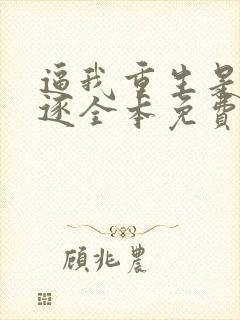 逼我重生是
逐全本免费
顾兆农